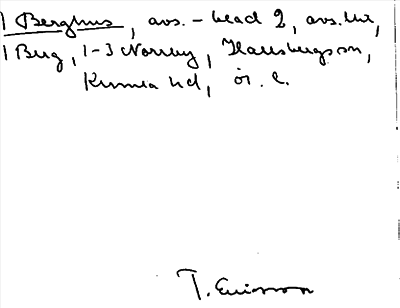 1 Berghus, avs. - bead 2, avs. lhr,
1 Berg, 1-3 Norrby, Hallsbergs sn,
Kumla hd, ör. l.
T. Ericsson